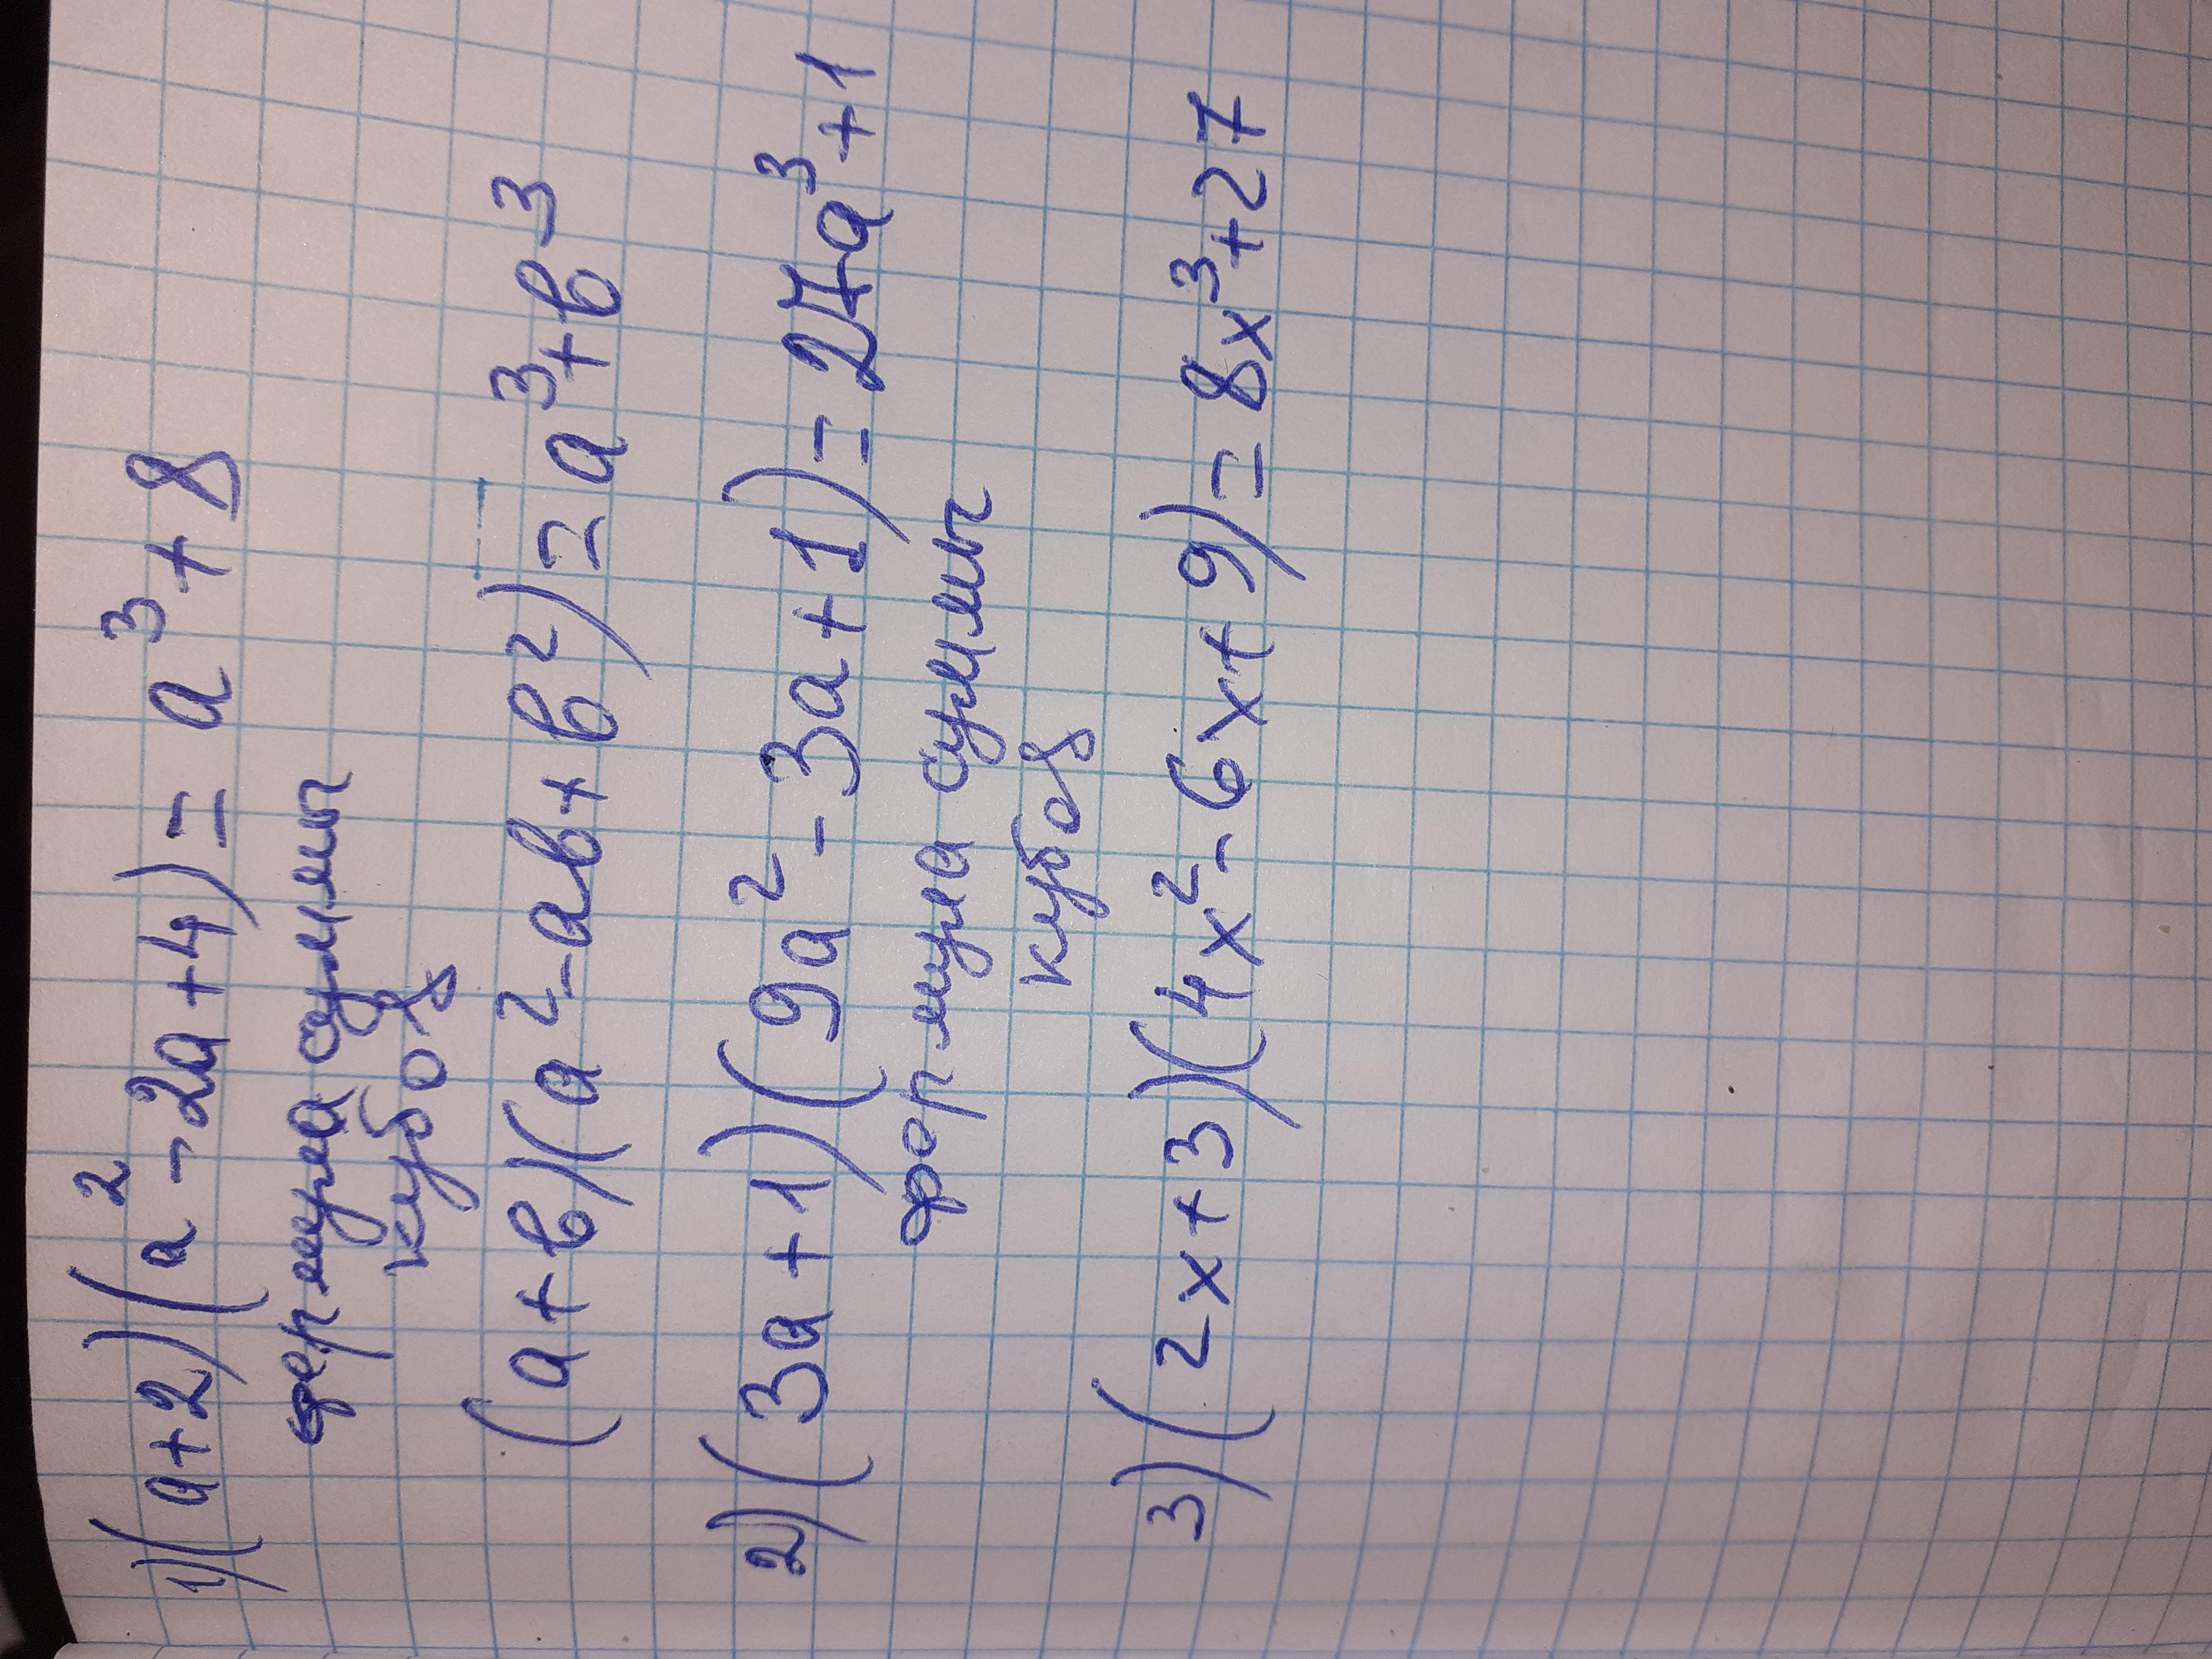 1) (a+2)(a²-2a+4) = a³+8
формула суммы
кубов
(a+b)(a²-ab+b²) = a³+b³
2) (3a+1)(9a²-3a+1) = 27a³+1
формула суммы
кубов
3) (2x+3)(4x²-6x+9) = 8x³+27